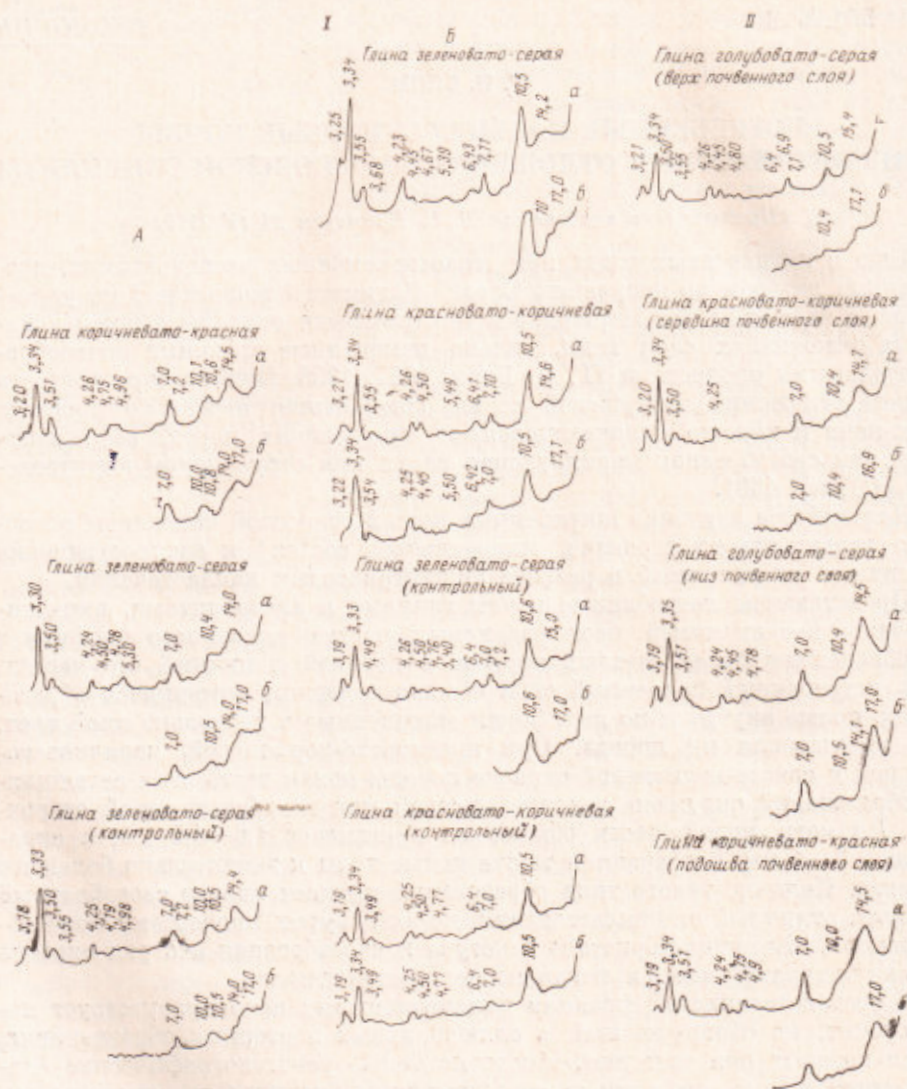 I
Б
Глина зеленовато-серая
3,25
3,34
3,55
3,68
4,23
4,45
4,67
5,39
6,43
7,11
10,5
14,2
а
10
17,0
б
II
Глина голубовато-серая
(верх почвенного слоя)
3,21
3,34
3,50
3,55
4,26
4,45
4,80
6,4
6,9
7,1
10,5
15,4
г
10,4
17,1
б
А
Глина коричневато-красная
3,20
3,34
3,51
4,26
4,75
4,96
7,0
7,2
10,1
10,6
14,5
а
7,0
10,0
10,8
14,0
17,0
б
Глина красновато-коричневая
3,21
3,34
3,55
4,26
4,50
5,49
6,41
7,10
10,5
14,6
а
3,22
3,34
3,54
4,25
4,45
5,50
6,42
7,0
10,5
17,1
б
Глина красновато-коричневая
(середина почвенного слоя)
3,20
3,34
3,50
4,25
7,0
10,4
14,7
а
7,0
10,4
16,9
б
Глина зеленовато-серая
3,30
3,50
4,24
4,50
4,78
4,90
7,0
10,4
14,0
а
7,0
10,5
14,0
17,0
б
Глина зеленовато-серая
(контрольный)
3,19
3,33
4,49
4,26
4,50
6,4
7,0
7,2
10,6
15,0
а
10,6
17,0
б
Глина голубовато-серая
(низ почвенного слоя)
3,19
3,35
3,51
4,24
4,45
4,78
7,0
10,4
14,5
а
7,0
10,5
14,1
17,0
Глина зеленовато-серая
(контрольный)
3,18
3,33
3,50
3,55
4,25
4,79
4,98
7,0
7,2
10,0
10,5
14,4
а
7,0
10,0
10,5
14,0
17,0
б
Глина красновато-коричневая
(контрольный)
3,19
3,34
3,49
4,25
4,50
4,77
6,4
7,0
10,5
а
3,19
3,34
3,49
4,25
4,50
4,77
6,4
7,0
10,5
б
Глина коричневато-красная
(подошва почвенного слоя)
3,19
3,34
3,51
4,24
4,9
7,0
10,0
14,5
а
17,0